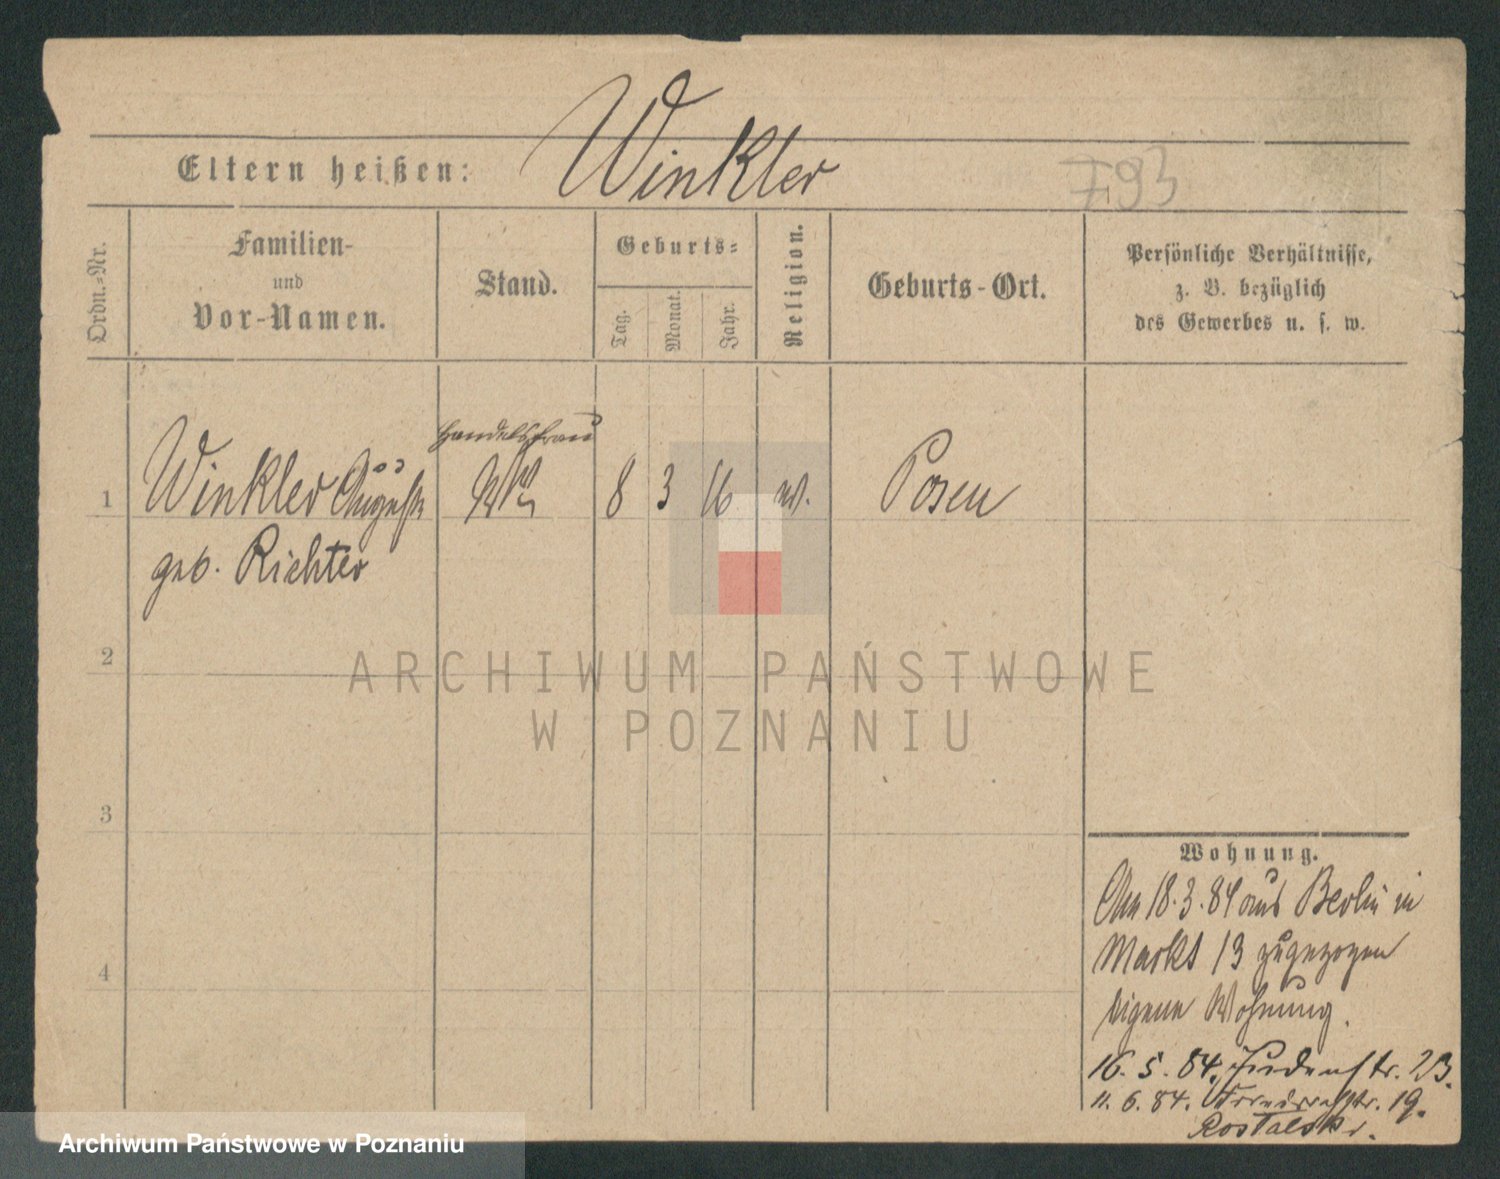 Eltern heißen: Winkler
793
Ordn.-Nr.
Familien-
und
Vor-Namen.
Stand.
Geburts-
Tag.
Monat.
Jahr.
Religion.
Geburts-Ort.
Persönliche Verhältnisse,
z. B. bezüglich
des Gewerbes u. s. w.
Handelsfrau
1 Winkler Auguste 8 3 16 Posen
geb. Richter
2
3
4
ARCHIWUM PAŃSTWOWE
W POZNANIU
Wohnung.
Am 18.3.84 aus Berlin in
Markt 13 zugezogen
eigene Wohnung.
16. 5. 84. Judenstr. 23.
11. 6. 84. 19.
Rostalski.
Archiwum Państwowe w Poznaniu